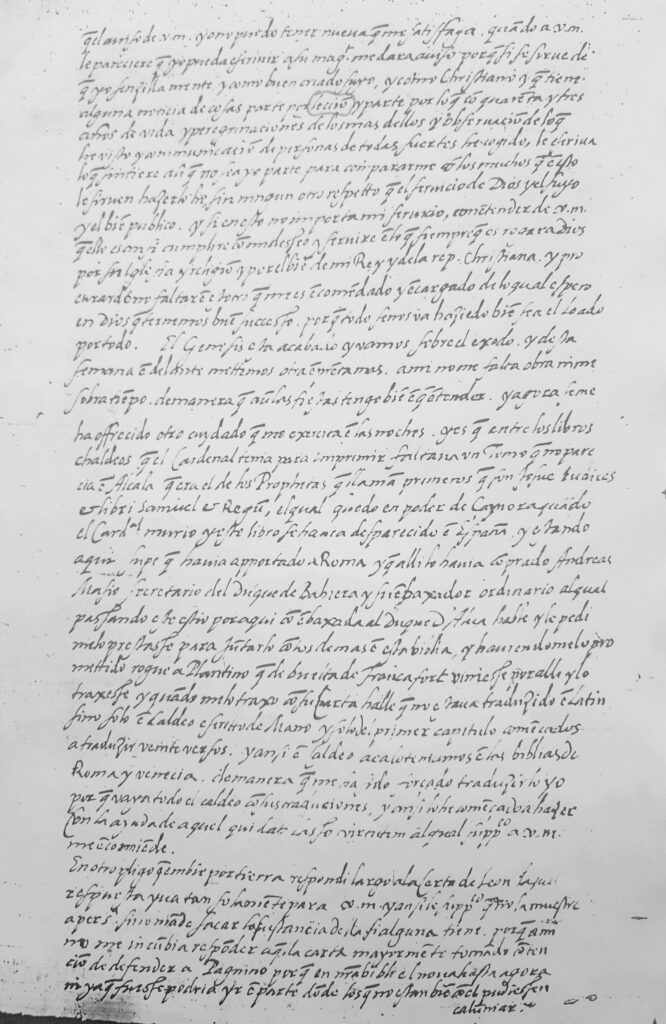 q̃ el auiso de .v.m. y o no puedo tener nueua q̃ me satisfaga. quãdo a .v.m.
le pareciere q̃ yo pueda escriuir a su mag.ᵈ me dara auiso porq̃ si se sirue de
q̃ yo senzillamente y como buen criado suyo, y como Christiano y q̃ tiene
alguna noticia de cosas parte por leciõ y parte por lo q̃ cõ quarẽta y tres
años de vida y peregrinaciones de los mas dellos y obseruaciõ de lo q̃
he visto y comunicaciõ de personas de todas suertes he cogido, le escriua
lo q̃ sintiere aũq̃ no sea yo parte para compararme cõ los muchos q̃ ẽ esto
le siruen hazerlo he, sin ningun otro respetto q̃ el seruicio de Dios y el suyo
y el biẽ publico. y si en esto no importa mi seruicio, con entender de .v.m.
q̃ ello es ansi cumplire cõ mi desseo y seruire ẽ lo q̃ siempre q̃ es rogar a Dios
por su Iglesia y religiõ y por el biẽ de mi Rey y de la rep. Christiana. y pro
curarẽ no faltar ẽ lo q̃ me es ẽcomẽdado y ẽcargado de lo qual espero
en Dios q̃ ternemos buẽ successo. porq̃ todo se nos va haziẽdo biẽ sea el loado
por todo. El Genesis esta acabado y vamos sobre el exodo. y desta
semana ẽ delante mettimos otra ẽmẽtamas. a mi no me falta obra ni me
sobra tiẽpo. de manera q̃ aũ las fiestas tengo biẽ ẽ q̃ ẽtender. y agora se me
ha offrecido otro cuydado q̃ me exercita ẽ las noches. y es q̃ entre los libros
chaldeos q̃ el Cardenal tenia para imprimir faltaua vn Tomo q̃ no pare
cia ẽ Alcala q̃ era el de los Prophetas q̃ llamã primeros q̃ sõn Iosue Iudices
& libri Samuel & Regũ, el qual quedo en poder de Çamora quãdo
el Card.ˡ murio y este libro se hauia desparecido ẽ España. y estando
aqui supe q̃ hauia apportado a Roma y q̃ alli lo hauia cõprado Andreas
Masio secretario del Duque de Babiera y su ẽbaxador ordinario al qual
passando este estio por aqui cõ ẽbaxada al Duque D'Alua hable y le pedi
me lo prestasse para jũtarlo cõ los demas ẽ esta biblia, y hauiendomelo pro
mettido rogue a Plantino q̃ de buelta de Francafort viniesse por alli y lo
traxesse y quãdo me lo traxo con su Carta halle q̃ no estaua traduzido ẽ Latin
sino solo ẽ Caldeo escritto de Mano y solo del primer capitulo comẽcados
a traduzir veinte versos. y ansi ẽ caldeo aca lo teniamos ẽ las biblias de
Roma y venecia. de manera q̃ me ha sido forçado traduzirlo yo
porq̃ vaya todo el caldeo cõ sus traductiones, y ansi lo he comẽcado a hazer
Con la ayuda de aquel qui dat lasso virtutem al qual supp.ᶜᵒ a .v.m.
me ẽcomiẽde.
En otro pliego q̃ embie por tierra respondi largo a la carta de Leon la qual
respuesta yua tan solamẽte para .v.m. y ansi le supp.ᶜᵒ q̃ no la muestre
a pers.ᵃ sino mãde sacar la sustancia della si alguna tiene. porq̃ a mi
no me incũbia respõder a q̃lla carta mayrmente tomado cõ tẽn
ciõ de defender a Pagnino porq̃ en mẽbible el no ua hasta agora
ni ya q̃ fuesse podria yr ẽ parte dõde los q̃ no estan biẽ cõ el pudiessen
calũniar.